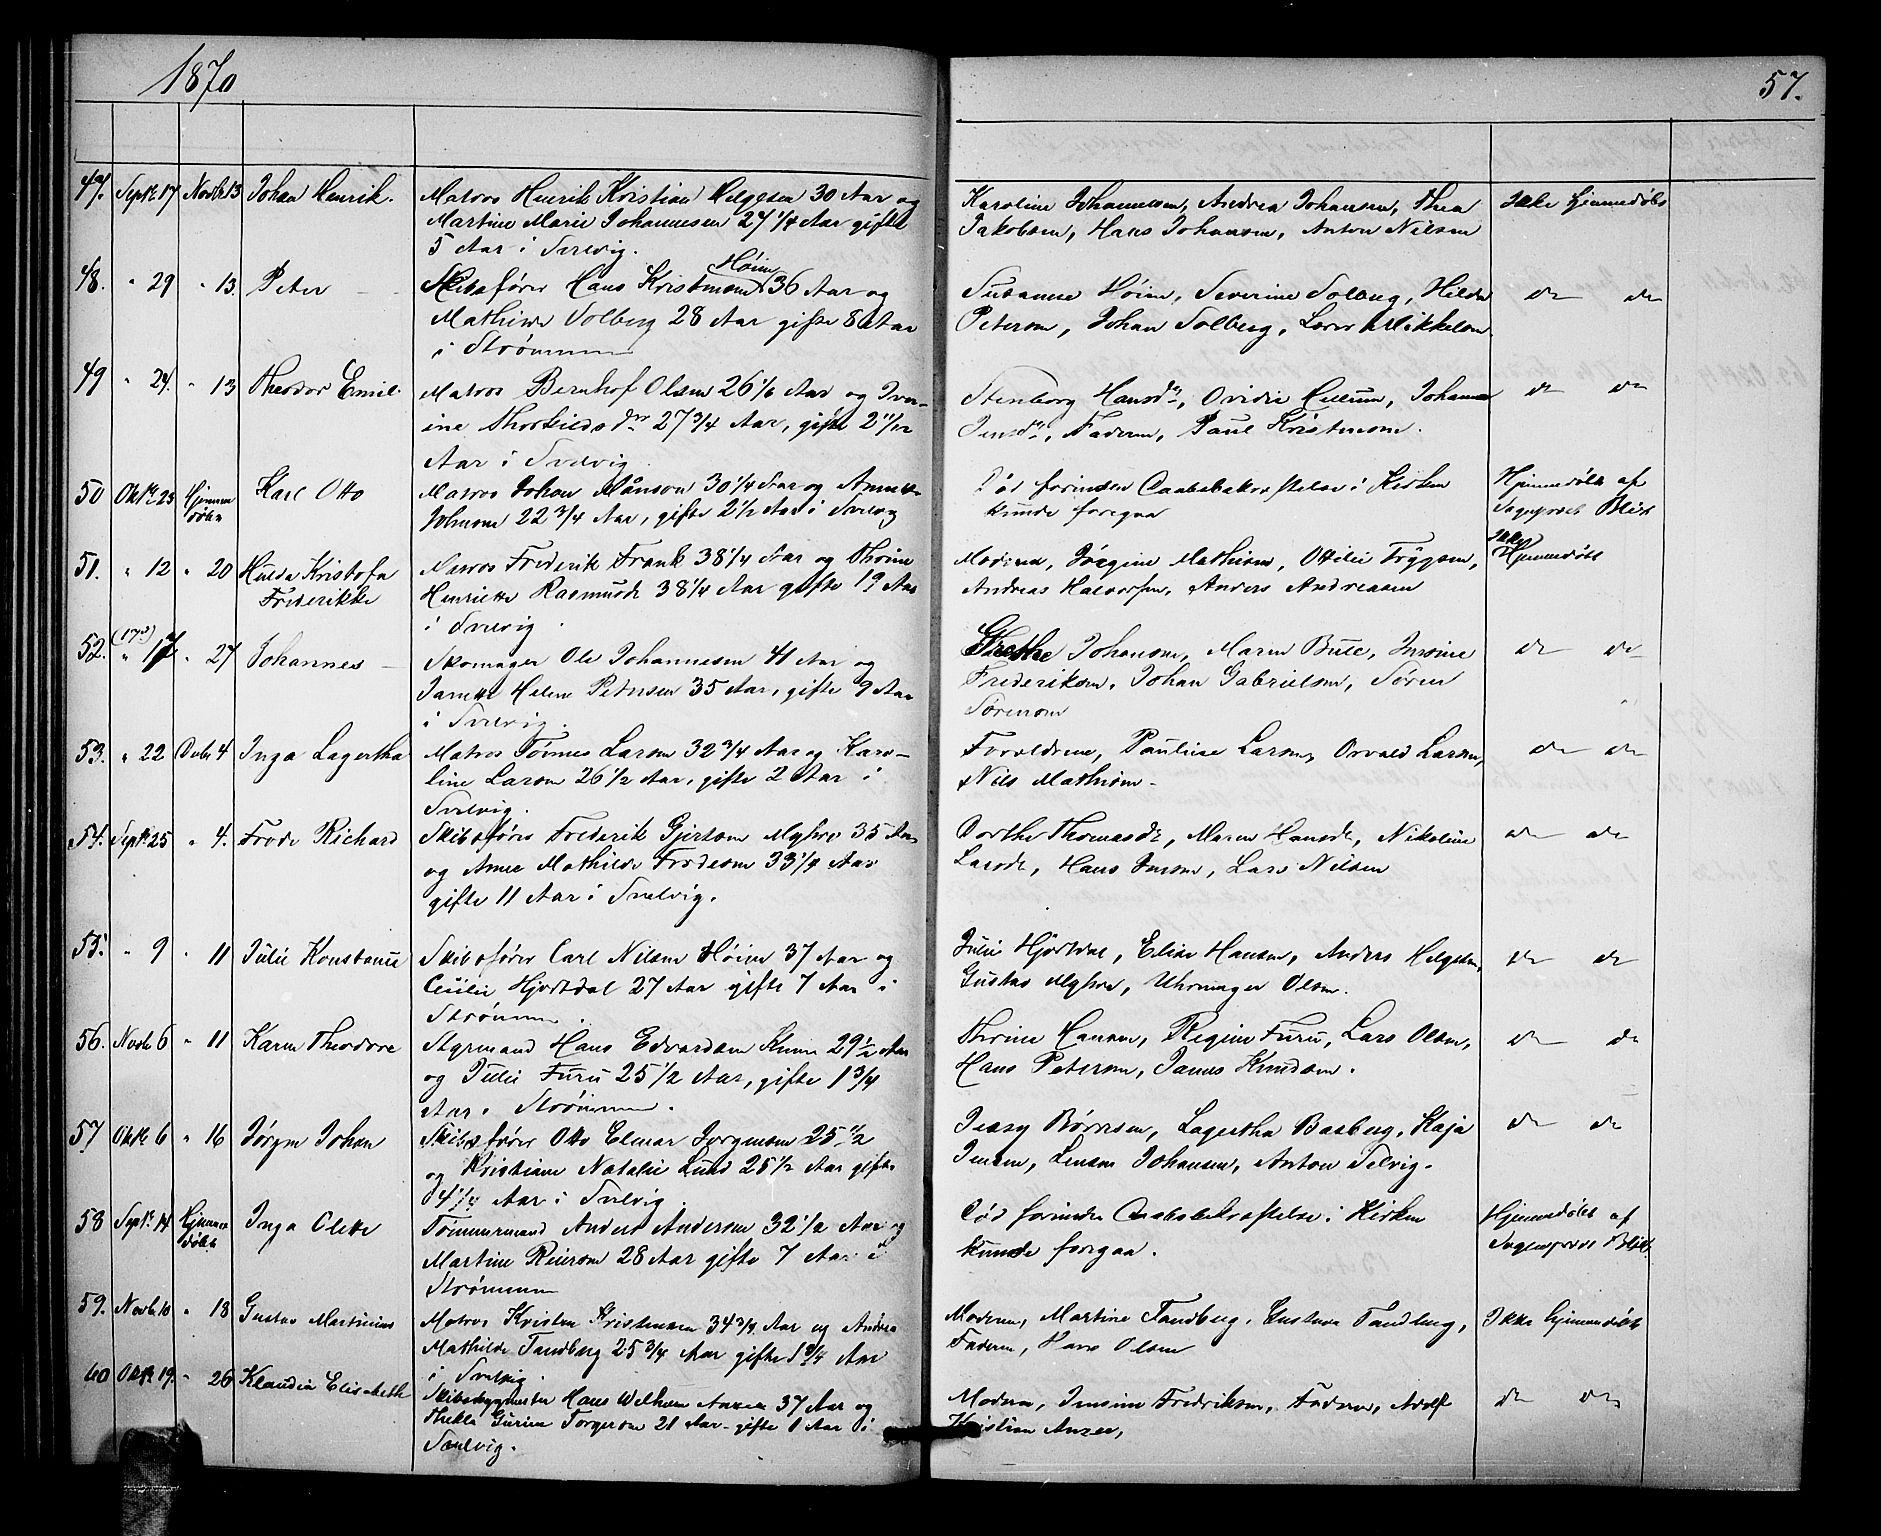 1870
57.
47. Septbr 17 Novbr 13 Johan Henrik.
Matros Henrik Kristian Helgesen 30 Aar og
Martine Marie Johannesen 27 1/4 Aar gifte
5 Aar i Svelvig.
Karoline Johannesen, Andrea Johansen, Thea
Jakobsen, Hans Johansen, Anton Nilsen
Ikke Hjemmedøbt
48. " 29 " 13. Peter
Høim
Skibsfører Hans Kristensen 36 Aar og
Mathilde Solberg 28 Aar gifte 8 Aar
i Strømmen
Susanne Høim, Severine Solberg, Hilda
Petersen, Johan Solberg, Mikkelsen
do do
49 " 24. " 13 Theodor Emil
Matros Bernhof Olsen 26 1/6 Aar og Iver-
ine Thorkildsdr 27 3/4 Aar, gifte 2 11/12
Aar i Svelvig
Stenborg Hansdr, Ovidie Hellum, Johanne
Jensdr, Faderen, Paul Kristensen.
do do
50 Oktbr 23 Hjemme
døbt
Karl Otto
Matros Johan Månson 30 1/4 Aar og Annette
Johnsen 22 3/4 Aar, gifte 2 1/2 Aar i Svelvig
Død forinden Daabsbekræftelse i Kirken
kunde foregaa
Hjemmedøbt af
Sogneprest Blix
51. " 12 " 20 Hulda Kristofa
Frederikke
Matros Frederik Frank 38 1/4 Aar og Thrine
Henriette Rasmusdr 38 1/4 Aar gifte 19 Aar
i Svelvig.
Moderen, Jørgine Mathisen, Ottilie Trygsen,
Andreas Halvorsen, Anders Andreasen
Ikke
Hjemmedøbt
52. (17de)
" 17 " 27 Johannes
Skomager Ole Johannesen 41 Aar og
Janette Helene Petersen 35 Aar, gifte 9 Aar
i Svelvig.
Grethe Johansen, Maren Bull, Jensine
Frederiksen, Johan Gabrielsen, Søren
Sørensen
do do
53. " 22 Decbr 4 Inga Lagertha
Matros Tønnes Larsen 32 3/4 Aar og Karo-
line Larsen 26 1/2 Aar, gifte 2 Aar i
Svelvig.
Forældrene, Pauline Larsen, Osvald Larsen,
Nils Mathisen
do do
54. Septbr 25 " 4. Frode Richard
Skibsfører Frederik Gjertsen Myhre 35 Aar
og Anne Mathilde Frodesen 33 1/4 Aar
gifte 11 Aar i Svelvig.
Dorthe Thomasdr, Maren Hansdr, Nikoline
Larsdr, Hans Jensen, Lars Nilsen
do do
55. " 9 " 11 Julie Konstance
Skibsfører Carl Nilsen Høim 37 Aar og
Cecilie Hjertdal 27 Aar gifte 7 Aar i
Strømmen.
Julie Hjertdal, Elise Hansen, Anders Helgesen,
Gustav Myhre, Uhrmager Olsen.
do do
56. Novbr 6 " 11 Karen Theodore
Styrmand Hans Edvardsen 29 1/2 Aar
og Julie Furu 25 1/2 Aar, gifte 1 3/4
Aar i Strømmen.
Thrine Hansen, Regine Furu, Lars Olsen,
Hans Petersen, James Knudsen.
do do
57 Oktbr 6 " 16 Jørgen Johan
Skibsfører Otto Elmar Jørgensen 25 1/2
og Kristiane Natalie Lund 25 1/2 Aar gifte
4 1/4 Aar i Svelvig.
Jensy Børresen, Lagertha Basberg, Kaja
Jensen, Johansen, Anton Selvig.
do do
58 Septbr 14 Hjemme
døbt
Inga Olette
Tømmermand Anders Andersen 32 1/2 Aar og
Martine Reiersen 28 Aar gifte 7 Aar i
Strømmen
Død forinden Daabsbekræftelse i Kirken
kunde foregaa.
Hjemmedøbt af
Sogneprest Blix.
59. Novbr 10 " 18 Gustav Martinius
Matros Kristen Kristensen 34 3/4 Aar og Andrea
Mathilde Tandberg 25 3/4 Aar gifte 1 3/4 Aar
i Svelvig.
Moderen, Martine Tandberg, Gustava Tandberg,
Faderen, Hans Olsen
Ikke hjemmedøbt
60 Oktbr 19. " 26 Klaudia Elisabeth
Skibsbygmester Hans Wilhelm Anzee 37 Aar og
Thekla Gurine Torgersen 21 Aar gifte 1 Aar i
Svelvig.
Moderen, Jensine Fredriksen, Faderen, Adolf
Kristian Anzee,
do do